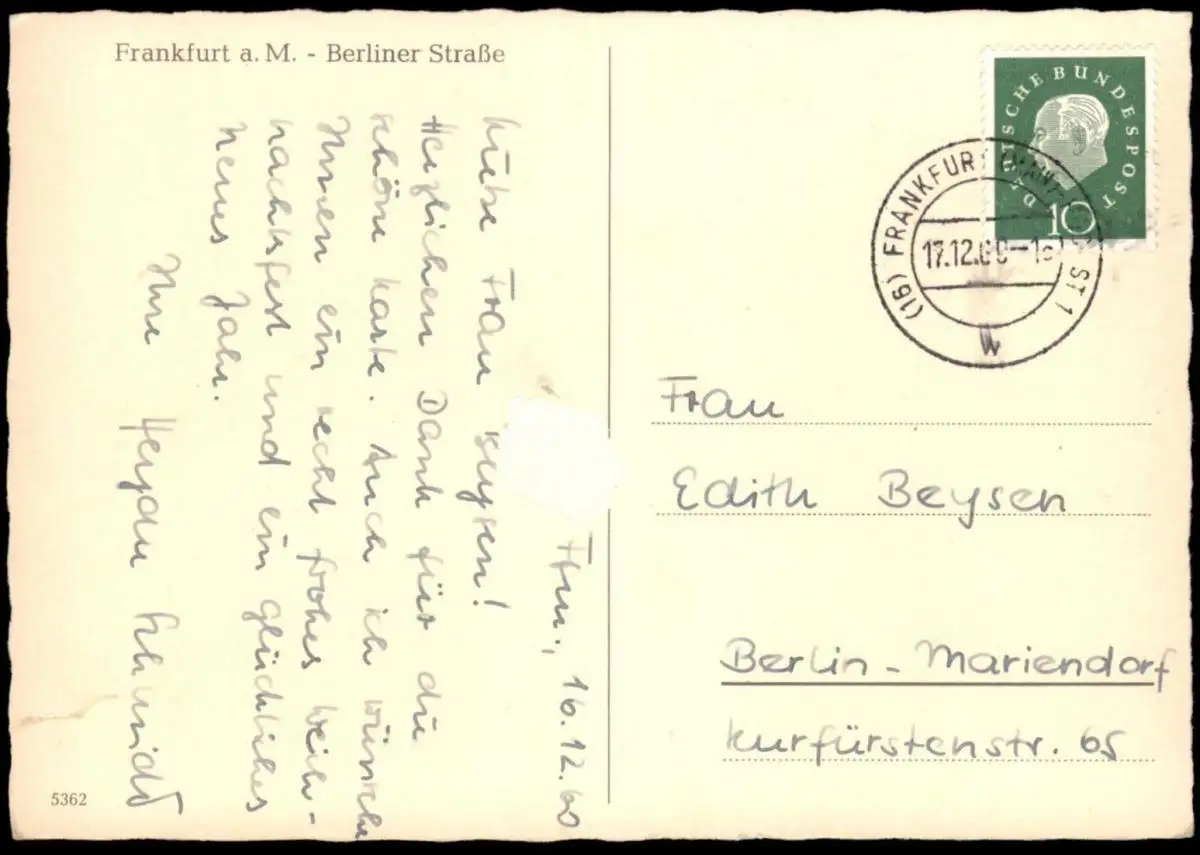 Frankfurt a. M. - Berliner Straße
Ffm., 16.12.60
Liebe Frau Beysen!
Herzlichen Dank für die
schöne Karte. Auch ich wünsche
Ihnen ein recht frohes Weih-
nachtsfest und ein glückliches
neues Jahr.
Ihre Schmidt
5362
DEUTSCHE BUNDESPOST
10
(16) FRANKFURT (MAIN)
17.12.60
ST 1
w
Frau
Edith Beysen
Berlin - Mariendorf
Kurfürstenstr. 65